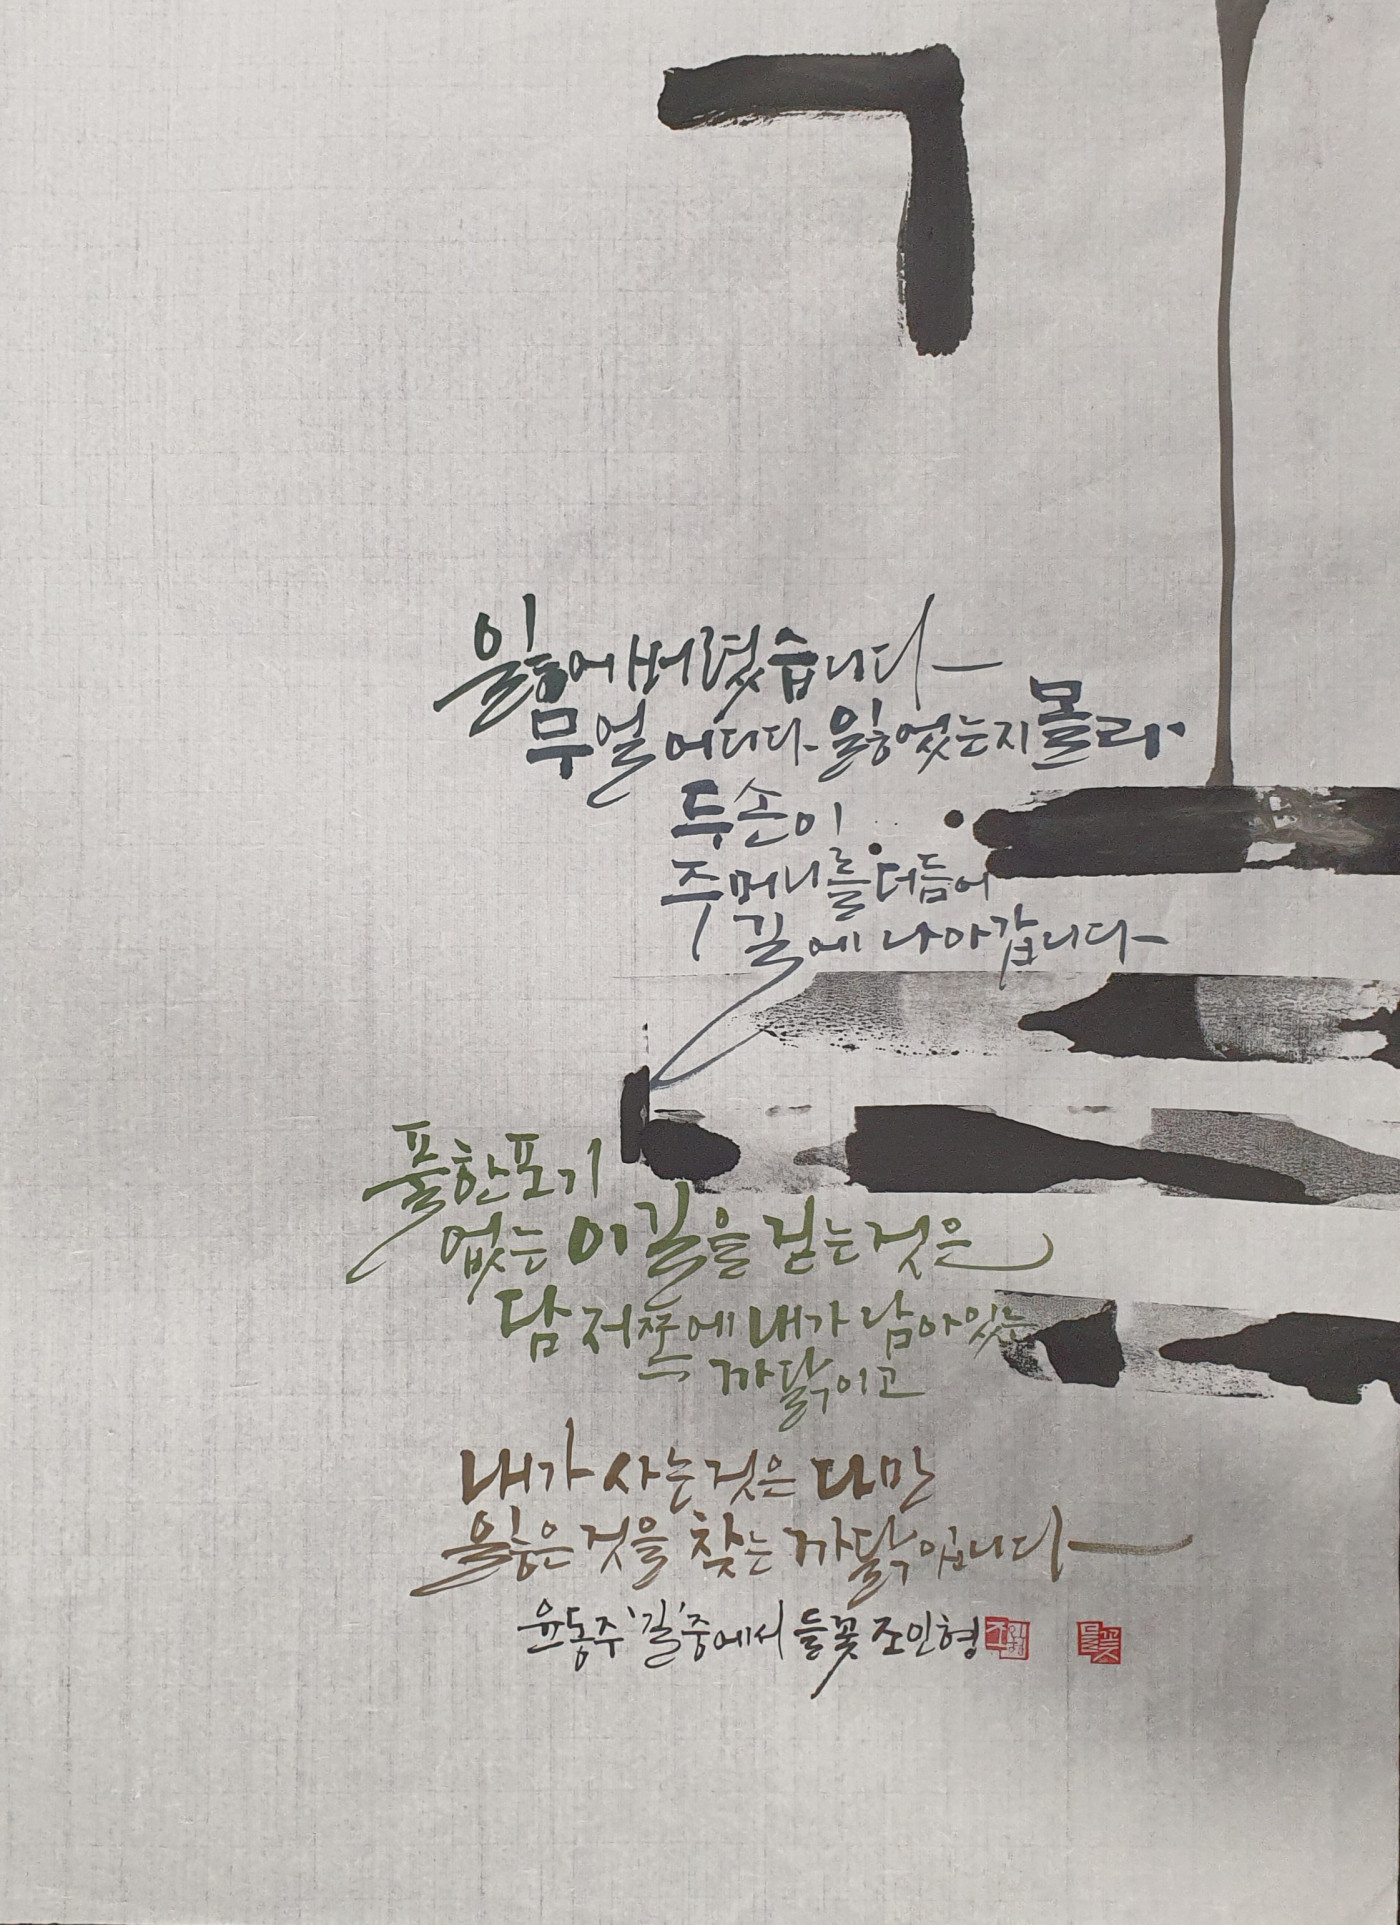 ㄱ
잃어버렸습니다
무얼 어디다 잃었는지 몰라
두 손이
주머니를 더듬어
길에 나아갑니다
풀 한 포기
없는 이 길을 걷는 것은
담 저쪽에 내가 남아 있는
까닭이고
내가 사는 것은 다만
잃은 것을 찾는 까닭입니다
윤동주 '길' 중에서 들꽃 조인형
조인형 들꽃